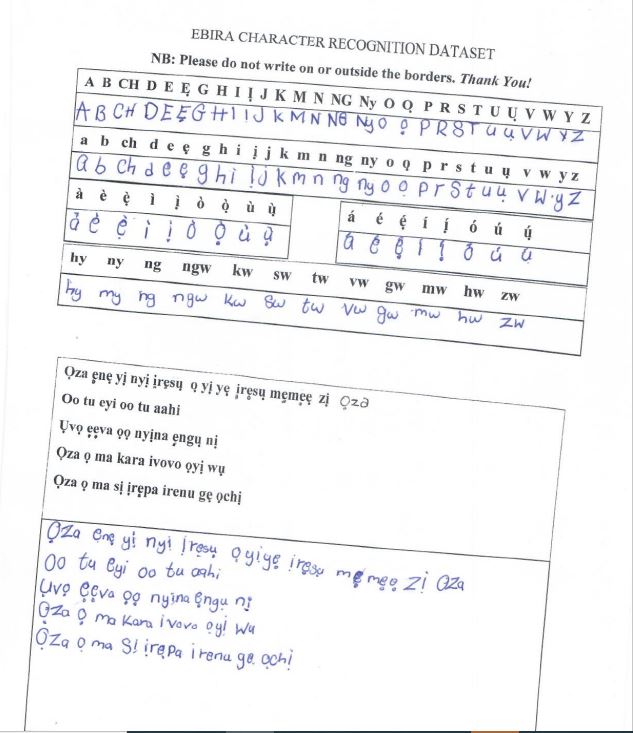 EBIRA CHARACTER RECOGNITION DATASET
NB: Please do not write on or outside the borders. Thank You!
A B CH D E Ẹ G H I Ị J K M N NG Ny O Ọ P R S T U Ụ V W Y Z
A B CH D E Ẹ G H I I J K M N NG Ny O Ọ P R S T U Ụ V W Y Z
a b ch d e ẹ g h i ị j k m n ng ny o ọ p r s t u ụ v w y z
a b ch d e ẹ g h i ị J k m n ng ny o ọ p r s t u ụ v w y z
à è ẹ̀ ì ị̀ ò ọ̀ ù ụ̀
à è ẹ̀ ì ị̀ ò ọ̀ ù ụ̀
á é ẹ́ í ị́ ó ú ụ́
á é ẹ́ í ị́ ó ú ụ́
hy ny ng ngw kw sw tw vw gw mw hw zw
hy my ng ngw kw sw tw vw gw mw hw zw
Ọza ẹnẹ yị nyị ịrẹsụ ọ yị yẹ ịrẹsụ mẹmẹẹ zị Ọza
Oo tu eyi oo tu aahi
Ụvọ ẹẹva ọọ nyịna ẹngụ nị
Ọza ọ ma kara ivovo ọyị wụ
Ọza ọ ma sị ịrẹpa irenu gẹ ọchị
Ọza ẹnẹ yị nyi ịrẹsụ ọ yiyẹ irẹsụ mẹmẹẹ zị Ọza
Oo tu eyi oo tu aahi
Ụvọ ẹẹva ọọ nyina ẹngụ nị
Ọza ọ ma kara ivovo ọyị wu
Ọza ọ ma sị ịrẹpa irenu gẹ ọchị